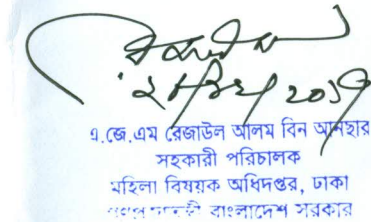 এ.জে.এম রেজাউল আলম বিন আনছার
সহকারী পরিচালক
মহিলা বিষয়ক অধিদপ্তর, ঢাকা
বাংলাদেশ সরকার